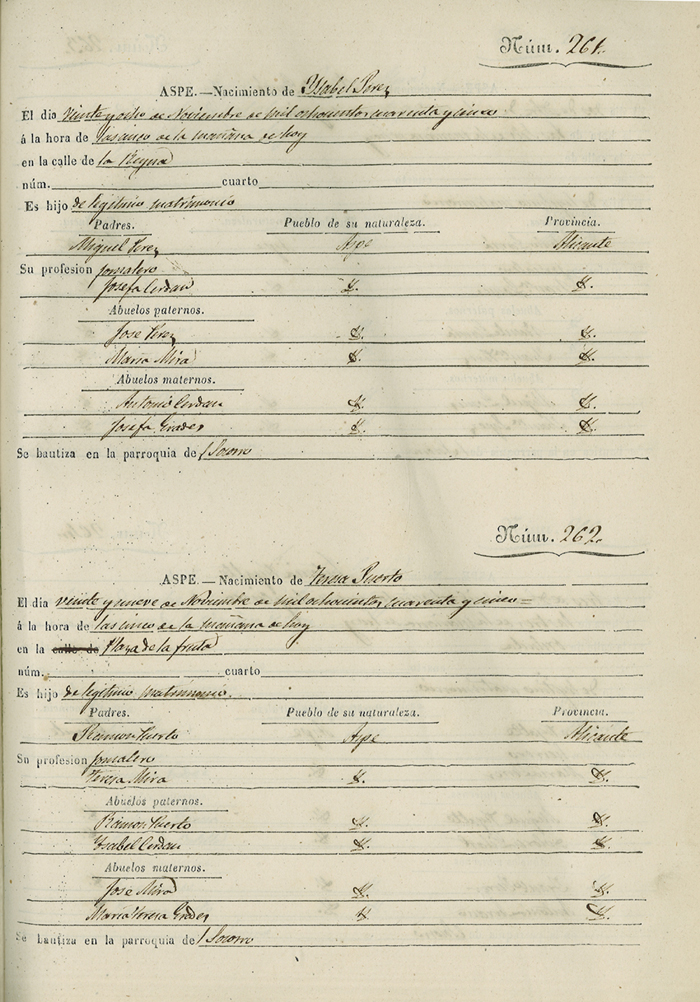 Núm. 261.
ASPE.—Nacimiento de Ysabel Perez
El día veinte y ocho de Noviembre de mil ochocientos cuarenta y cinco
á la hora de las cinco de la mañana de hoy
en la calle de la Reyna
núm. cuarto
Es hijo de legitimo matrimonio
Padres. Pueblo de su naturaleza. Provincia.
Miguel Perez Aspe Alicante
Su profesion jornalero
Josefa Cerdan
Abuelos paternos.
Jose Perez
Maria Mira
Abuelos maternos.
Antonio Cerdan
Josefa
Se bautiza en la parroquia de Socorro
Núm. 262.
ASPE.—Nacimiento de Teresa Puerto
El día veinte y nueve de Noviembre de mil ochocientos cuarenta y cinco=
á la hora de las cinco de la mañana de hoy
en la calle de Plaza de la fruta
núm. cuarto
Es hijo de legitimo matrimonio.
Padres. Pueblo de su naturaleza. Provincia.
Ramon Puerto Aspe Alicante
Su profesion jornalero
Teresa Mira
Abuelos paternos.
Ramon Puerto
Ysabel Cerdan
Abuelos maternos.
Jose Mira
Maria Teresa
Se bautiza en la parroquia de Socorro